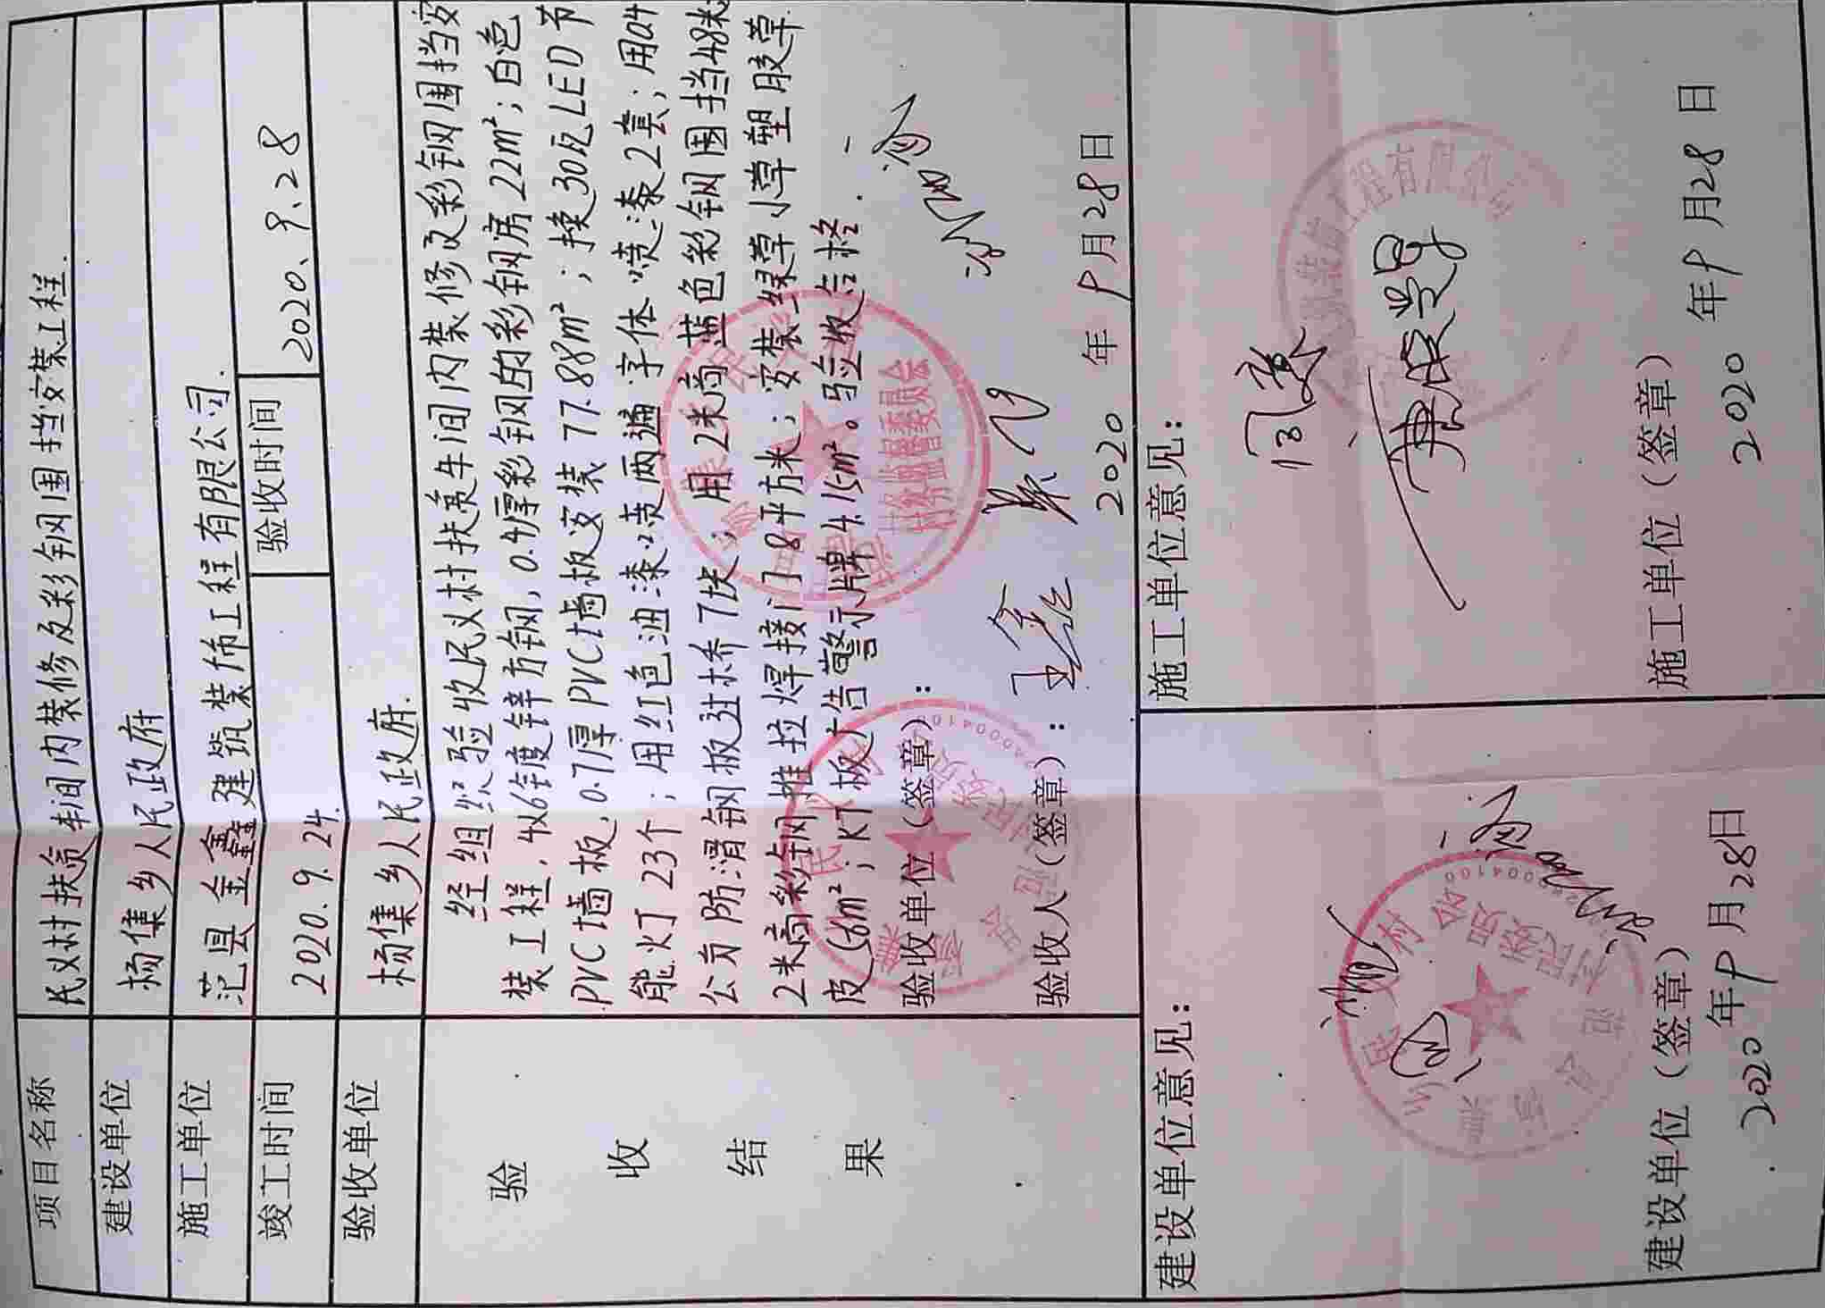 项目名称 民义村扶贫车间内装修及彩钢围挡安装工程.
建设单位 杨集乡人民政府
施工单位 范县金鑫建筑装饰工程有限公司.
竣工时间 2020.9.24. 验收时间 2020.9.28
验收单位 杨集乡人民政府.
验收结果
经组织验收民义村扶贫车间内装修及彩钢围挡安
装工程,4x6镀锌方钢,0.4厚彩钢瓦的彩钢房22m²;白色
PVC墙板,0.7厚PVC墙板安装77.88m²;换30瓦LED节
能灯23个;用红色油漆喷两遍字体喷漆2套;用a4
公分防滑钢板过桥7块;用2米高蓝色彩钢围挡48米
2米高彩钢推拉焊接门8平方米;安装绿草小草塑胶草
皮56m²;KT板广告警示牌4.15m²。验收合格.
验收单位(签章):
村务监督委员会
验收人(签章): 王金
2020年9月28日
建设单位意见:
村民委员会
建设单位(签章)
2020年9月28日
施工单位意见:
同意
装饰工程有限公司
施工单位(签章)
2020年9月28日